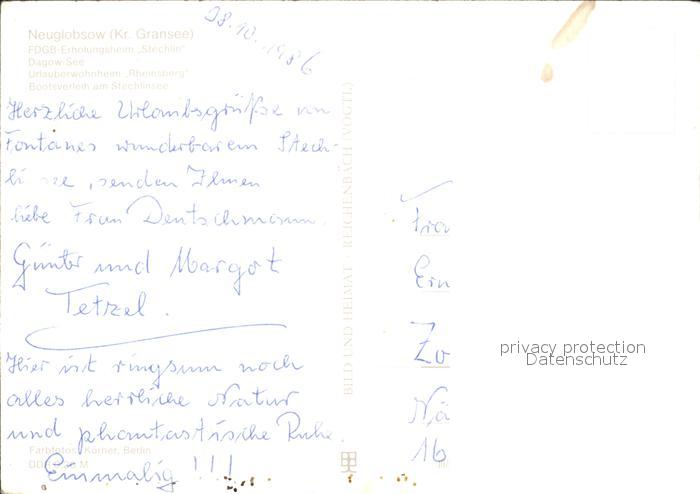 28.10.1986
Neuglobsow (Kr. Gransee)
FDGB-Erholungsheim „Stechlin"
Dagow-See
Urlauberwohnheim „Rheinsberg"
Bootsverleih am Stechlinsee
Herzliche Urlaubsgrüße von
Fontanes wunderbarem Stech-
li see, senden Ihnen
liebe Frau Deutschmann.
Günter und Margot
Tetzel.
Hier ist ringsum noch
alles herrliche Natur
und phantastische Ruhe.
Einmalig !!!
Farbfotos: Körner, Berlin
BILD UND HEIMAT · REICHENBACH (VOGTL)
Fra
Ern
Zo
privacy protection
Datenschutz
Nä
16